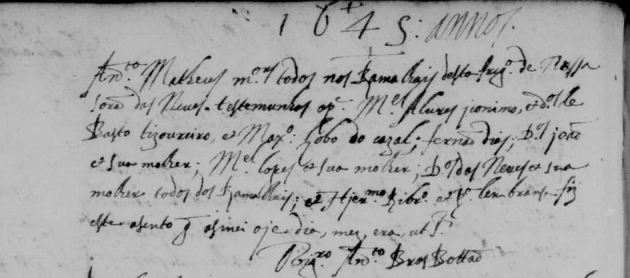 1645 : annos.
Ant.to Matheus m.res todos nos Ramalhais desta freg.ª de Nossa
Sora das Neves. testemunhas o p.e M.el Alvres jeronimo, e
Basto tizoureiro, e Lobo do cazal; fernão dias; D.os joão
e sua molher; M.el lopes e sua molher; D.os das Neves e sua
molher todos dos Ramalhais; e Hjer.mo Rib.ro e p.ª lembransa fiz
este asento q asinei oje dia, mes, era, ut s.ª
Ant.to Bras Bottado